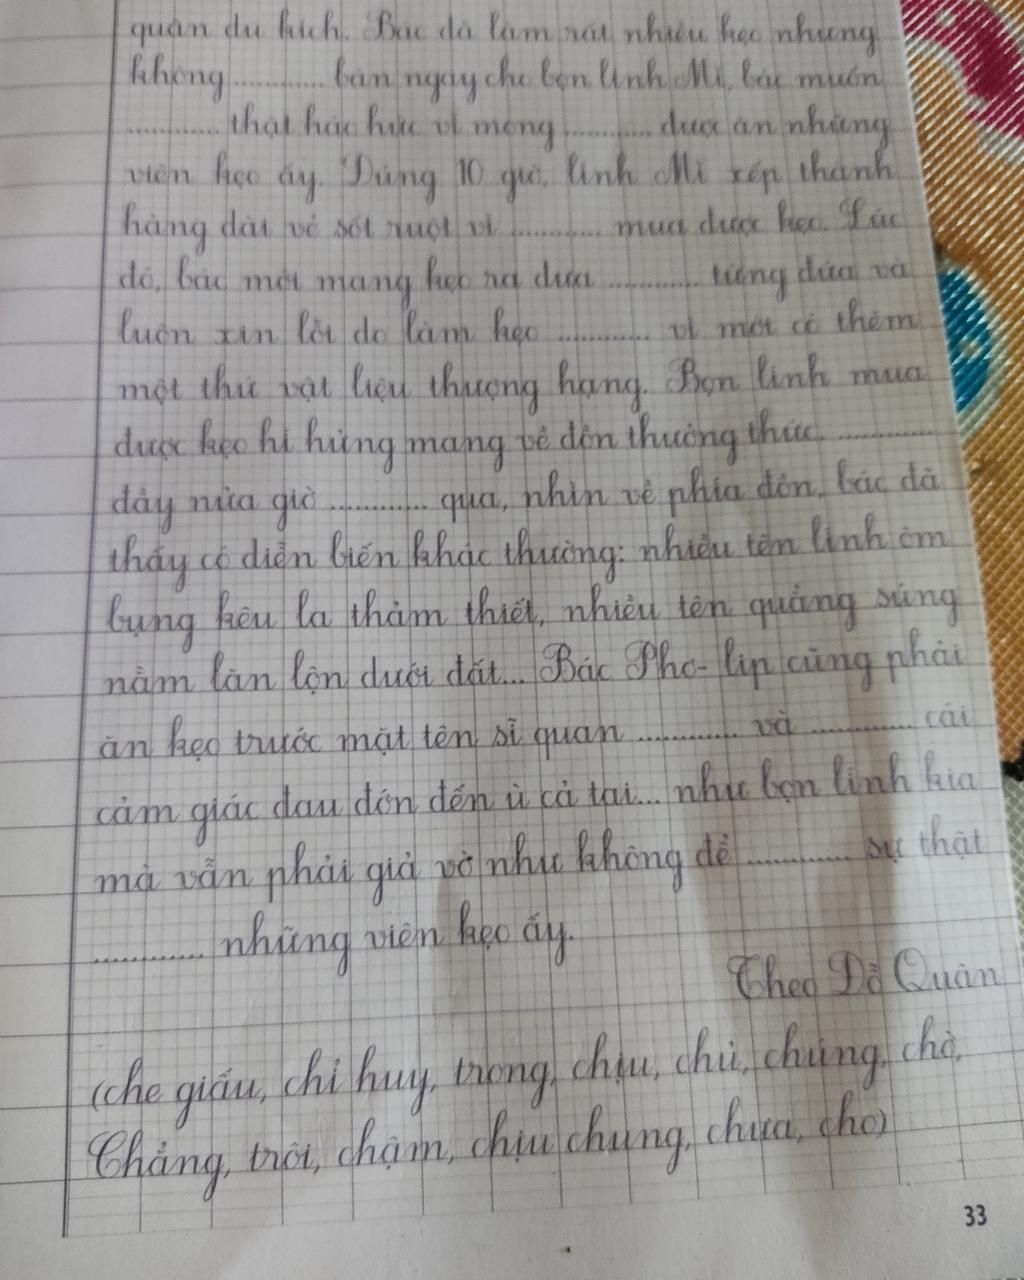 quân du kích. Bác đã làm rất nhiều kẹo nhưng
không ............ bán ngay cho bọn lính Mĩ, bác muốn
............ thật háo hức vì mong ............ được ăn những
viên kẹo ấy. Đúng 10 giờ, lính Mĩ xếp thành
hàng dài vẻ sốt ruột vì ............ mua được kẹo. Lúc
đó, bác mới mang kẹo ra đưa ............ từng đứa và
luôn xin lỗi do làm kẹo ............ vì mới có thêm
một thứ vật liệu thượng hạng. Bọn lính mua
được kẹo hí hửng mang về đồn thưởng thức. ............
đầy nửa giờ ............ qua, nhìn về phía đồn, bác đã
thấy có diễn biến khác thường: nhiều tên lính ôm
bụng kêu la thảm thiết, nhiều tên quẳng súng
nằm lăn lộn dưới đất... Bác Pho-lip cũng phải
ăn kẹo trước mặt tên sĩ quan ............ và ............ cái
cảm giác đau đớn đến ù cả tai... như bọn lính kia
mà vẫn phải giả vờ như không để ............ sự thật
............ những viên kẹo ấy.
Theo Đỗ Quân
(che giấu, chỉ huy, trong, chịu, chủ, chúng, chờ,
Chẳng, trôi, chậm, chịu chung, chưa, cho)
33